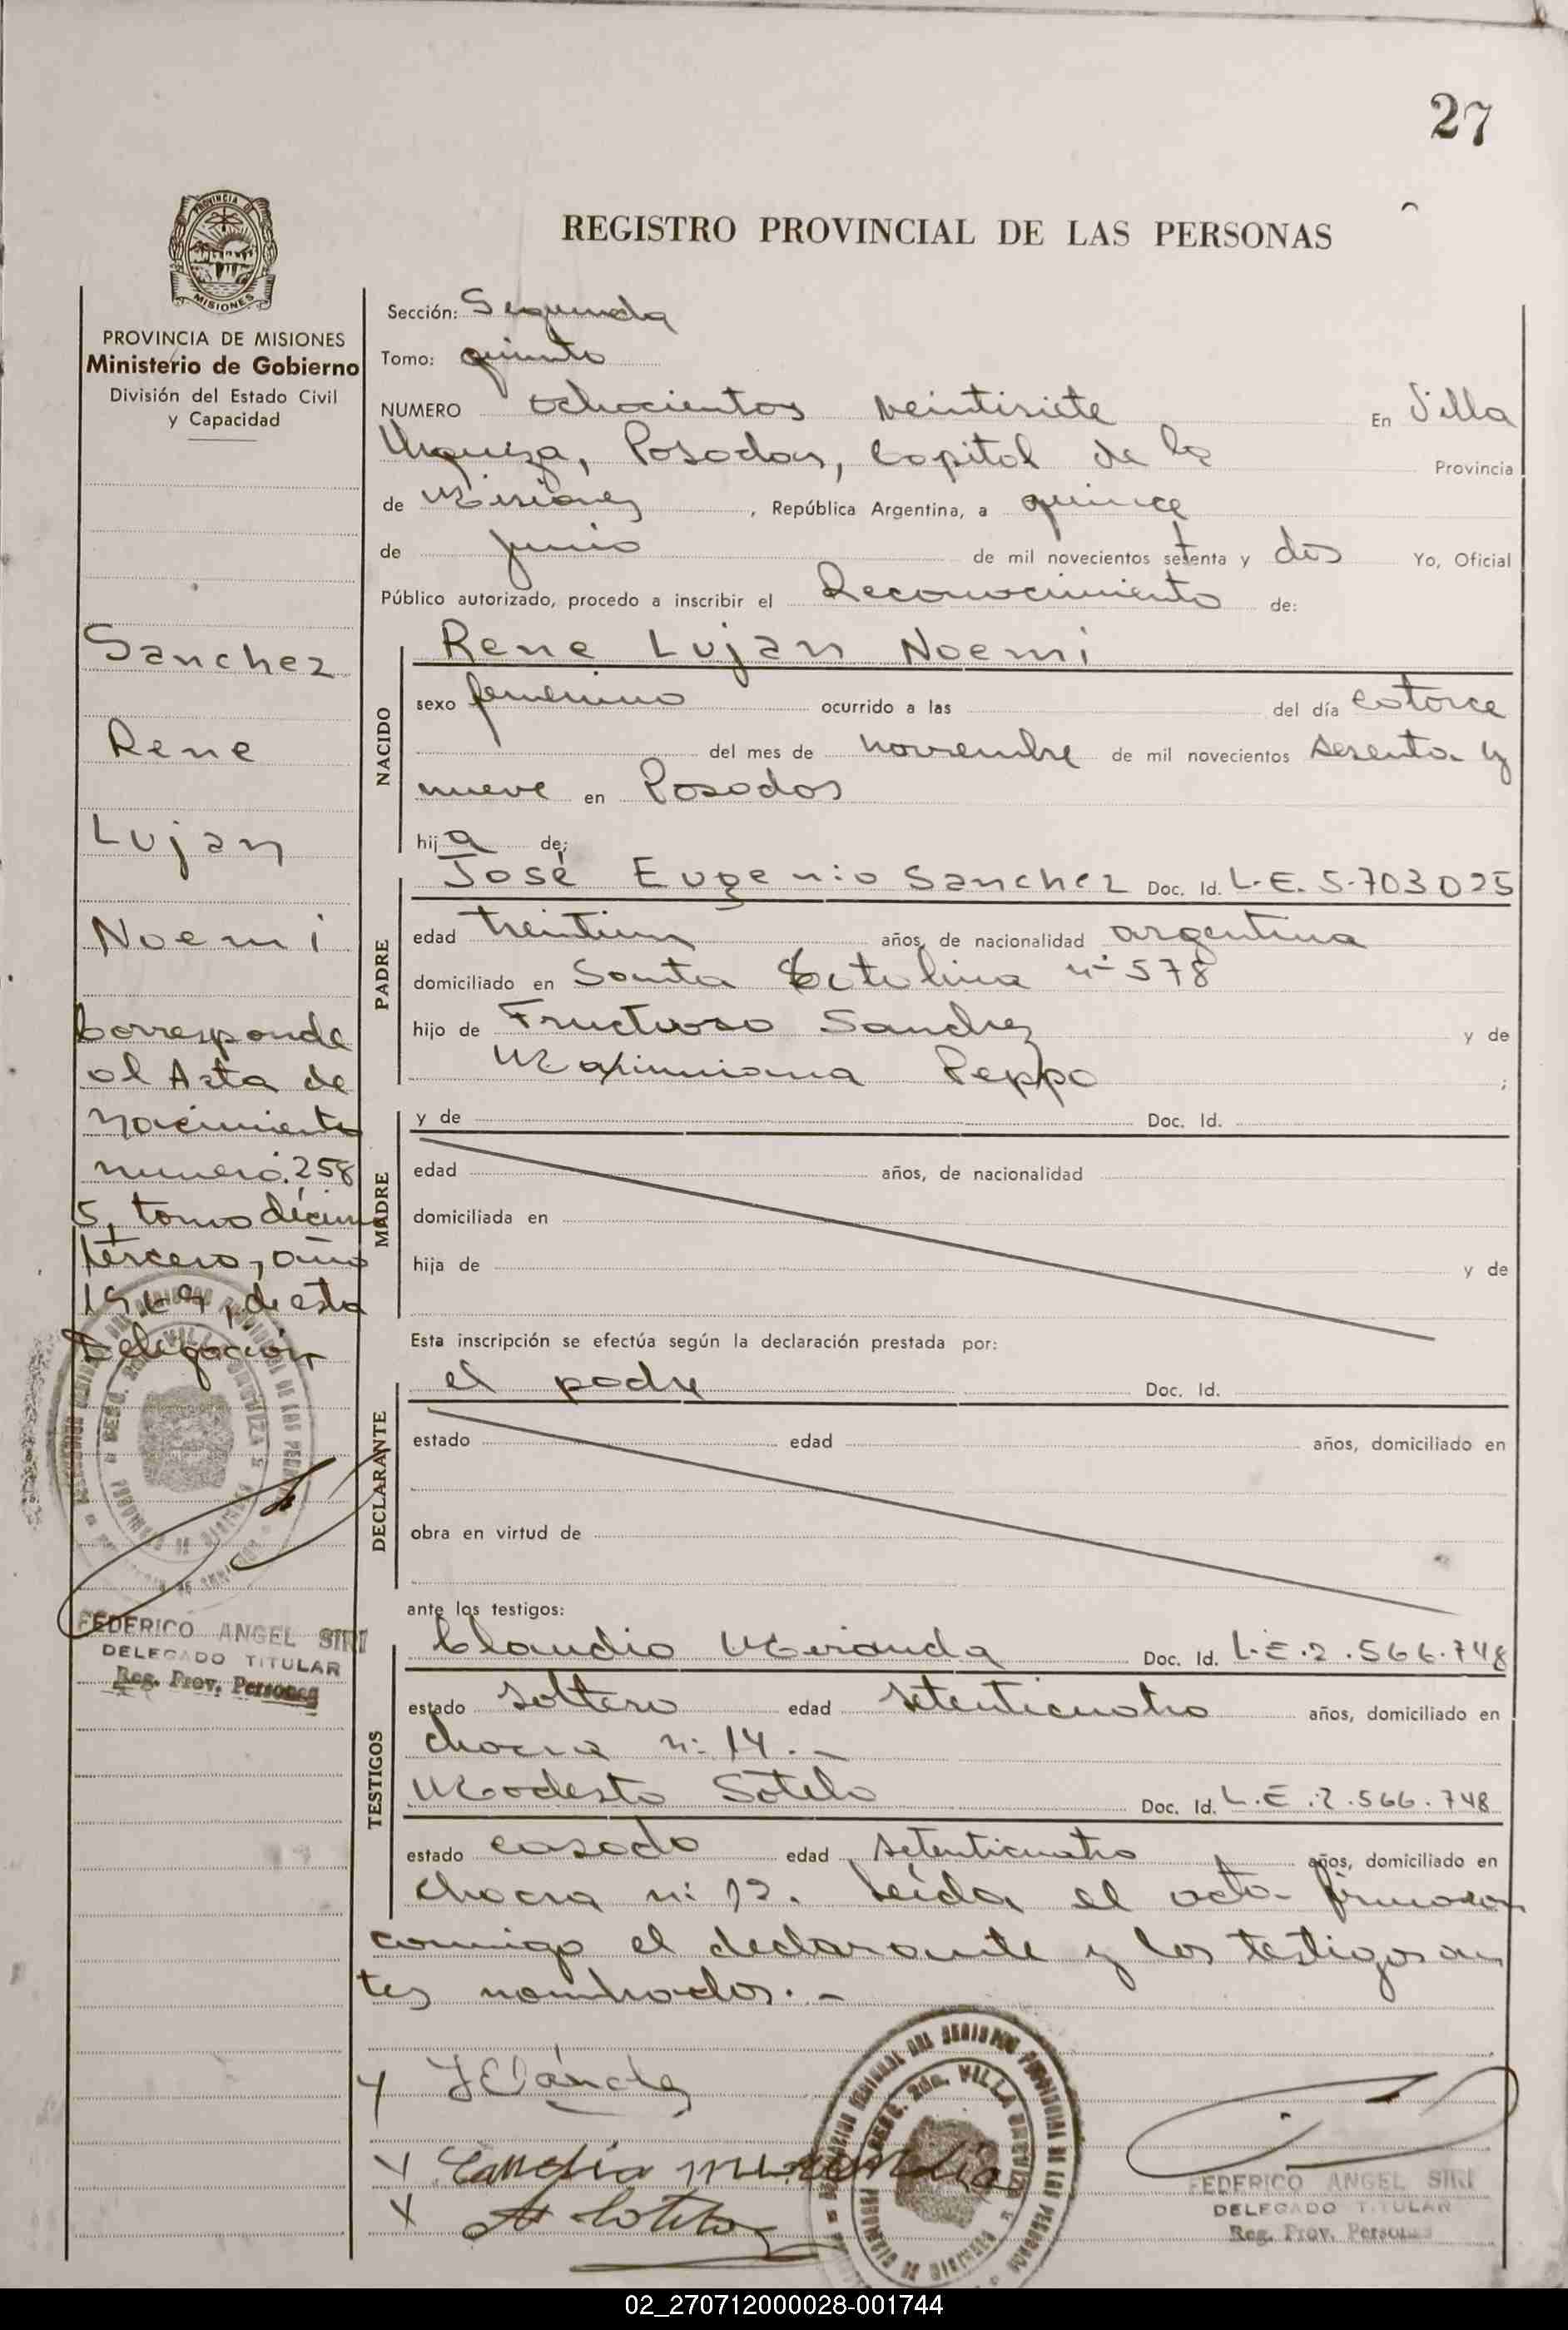 27
PROVINCIA DE MISIONES
REGISTRO PROVINCIAL DE LAS PERSONAS
PROVINCIA DE MISIONES
Ministerio de Gobierno
División del Estado Civil
y Capacidad
Sanchez
Rene
Lujan
Noemi
Corresponde
al Acta de
nacimiento
numero 258
5, tomo décimo
tercero, año
1969, de esta
Delegación
FEDERICO ANGEL SIRI
DELEGADO TITULAR
Reg. Prov. Personas
Sección: Segunda
Tomo: quinto
NUMERO ochocientos veintisiete En Villa
Urquiza, Posadas, Capital de la Provincia
de Misiones, República Argentina, a quince
de junio de mil novecientos setenta y dos Yo, Oficial
Público autorizado, procedo a inscribir el Reconocimiento de:
NACIDO
Rene Lujan Noemi
sexo femenino ocurrido a las del día catorce
del mes de noviembre de mil novecientos sesenta y
nueve en Posadas
hija de;
PADRE
José Eugenio Sanchez Doc. Id. L.E. 5.703025
edad treintiun años, de nacionalidad argentina
domiciliado en Santa Catalina nº 578
hijo de Fructuoso Sanchez y de
Maximiniana Peppo ;
MADRE
y de Doc. Id.
edad años, de nacionalidad
domiciliada en
hija de y de
Esta inscripción se efectúa según la declaración prestada por:
DECLARANTE
el padre Doc. Id.
estado edad años, domiciliado en
obra en virtud de
ante los testigos:
TESTIGOS
Claudio Miranda Doc. Id. L.E.2.566.748
estado soltero edad setenticuatro años, domiciliado en
chacra n: 14.-
Modesto Sotelo Doc. Id. L.E.2.566.748
estado casado edad setenticuatro años, domiciliado en
chacra n: 12. Leída el acta firmaron
conmigo el declarante y los testigos an
tes nombrados.-
FEDERICO ANGEL SIRI
DELEGADO TITULAR
Reg. Prov. Personas
02_270712000028-001744